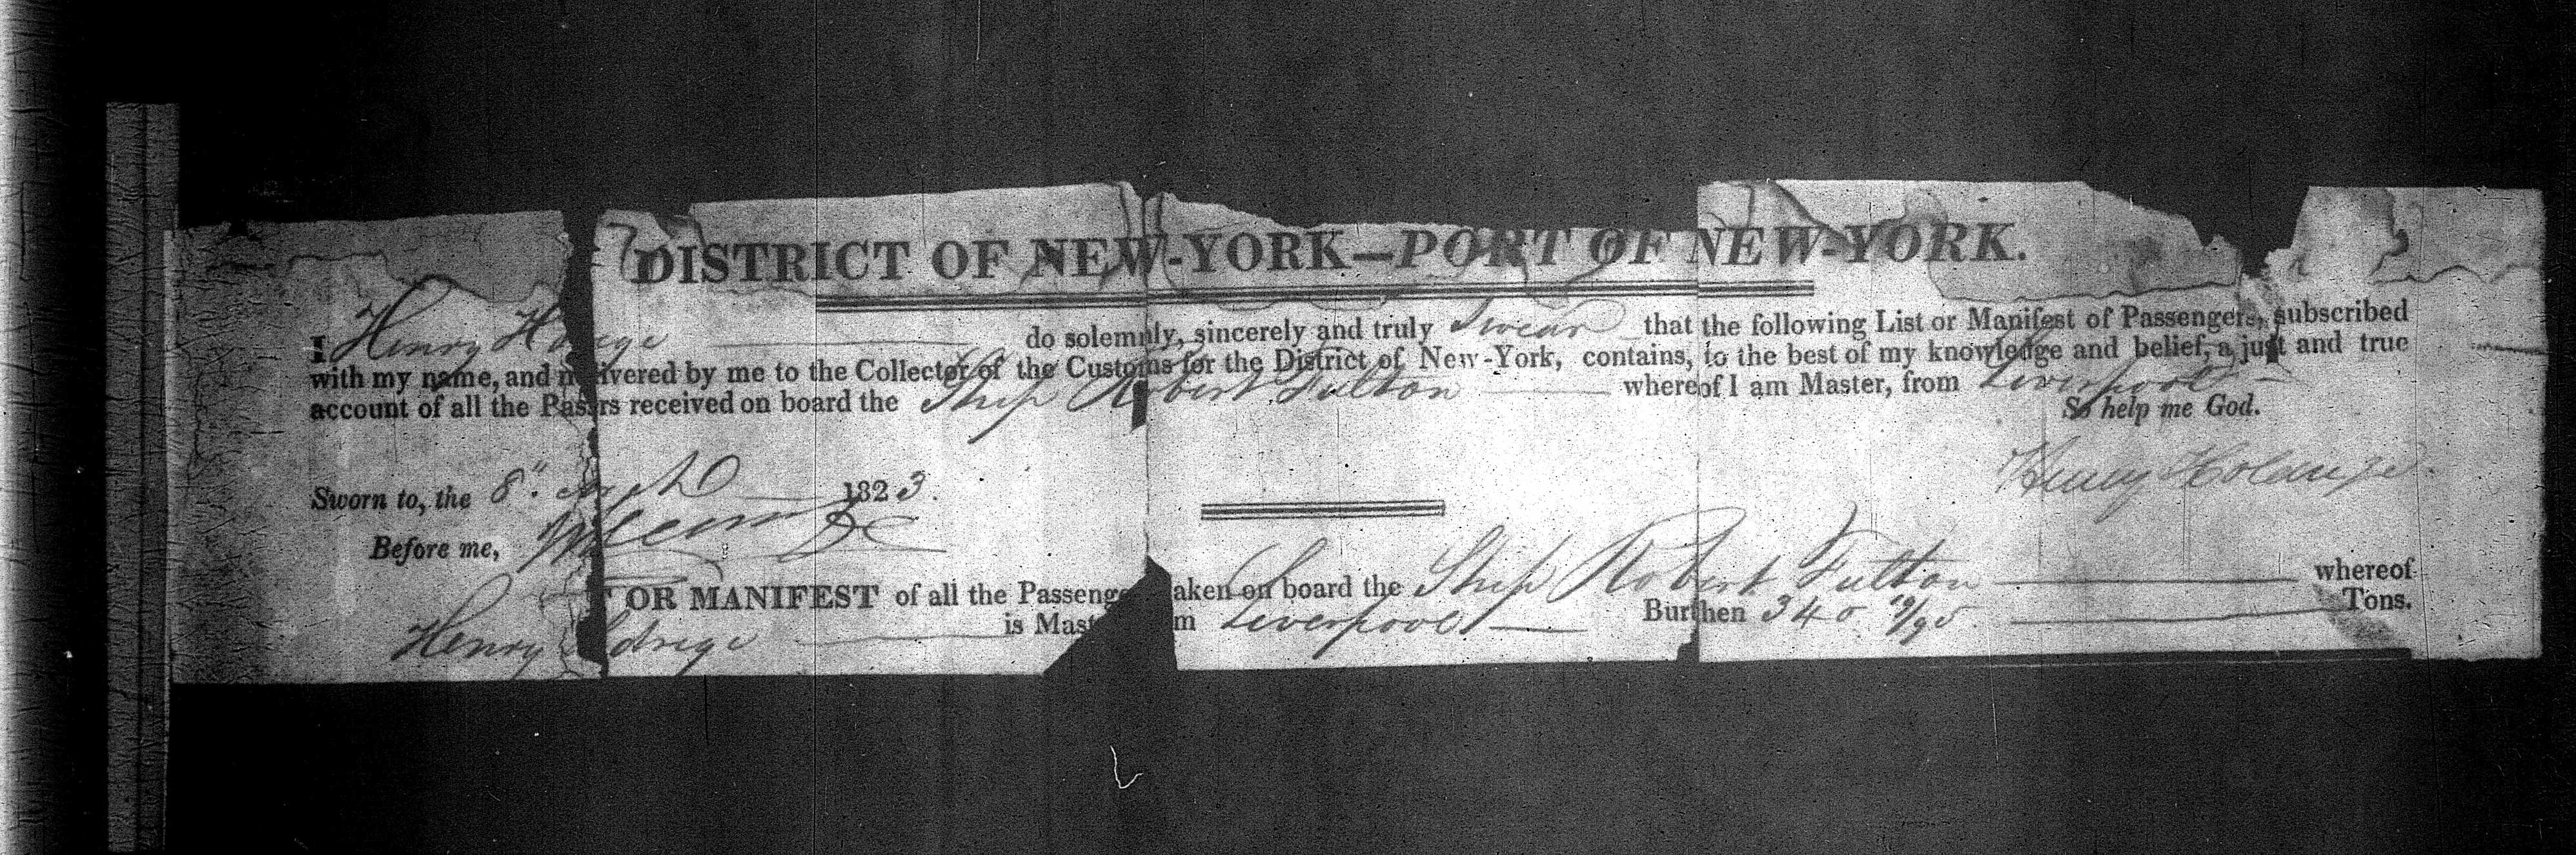 DISTRICT OF NEW-YORK—PORT OF NEW-YORK.
I Henry do solemnly, sincerely and truly swear that the following List or Manifest of Passengers, subscribed
with my name, and delivered by me to the Collector of the Customs for the District of New-York, contains, to the best of my knowledge and belief, a just and true
account of all the Passrs received on board the Ship Robert Fulton whereof I am Master, from Liverpool
So help me God.
Henry
Sworn to, the 8" Sept 1823.
Before me,
OR MANIFEST of all the Passenge aken on board the Ship Robert Fulton whereof
Henry drege is Mast m Liverpool Burthen 340 19/95 Tons.